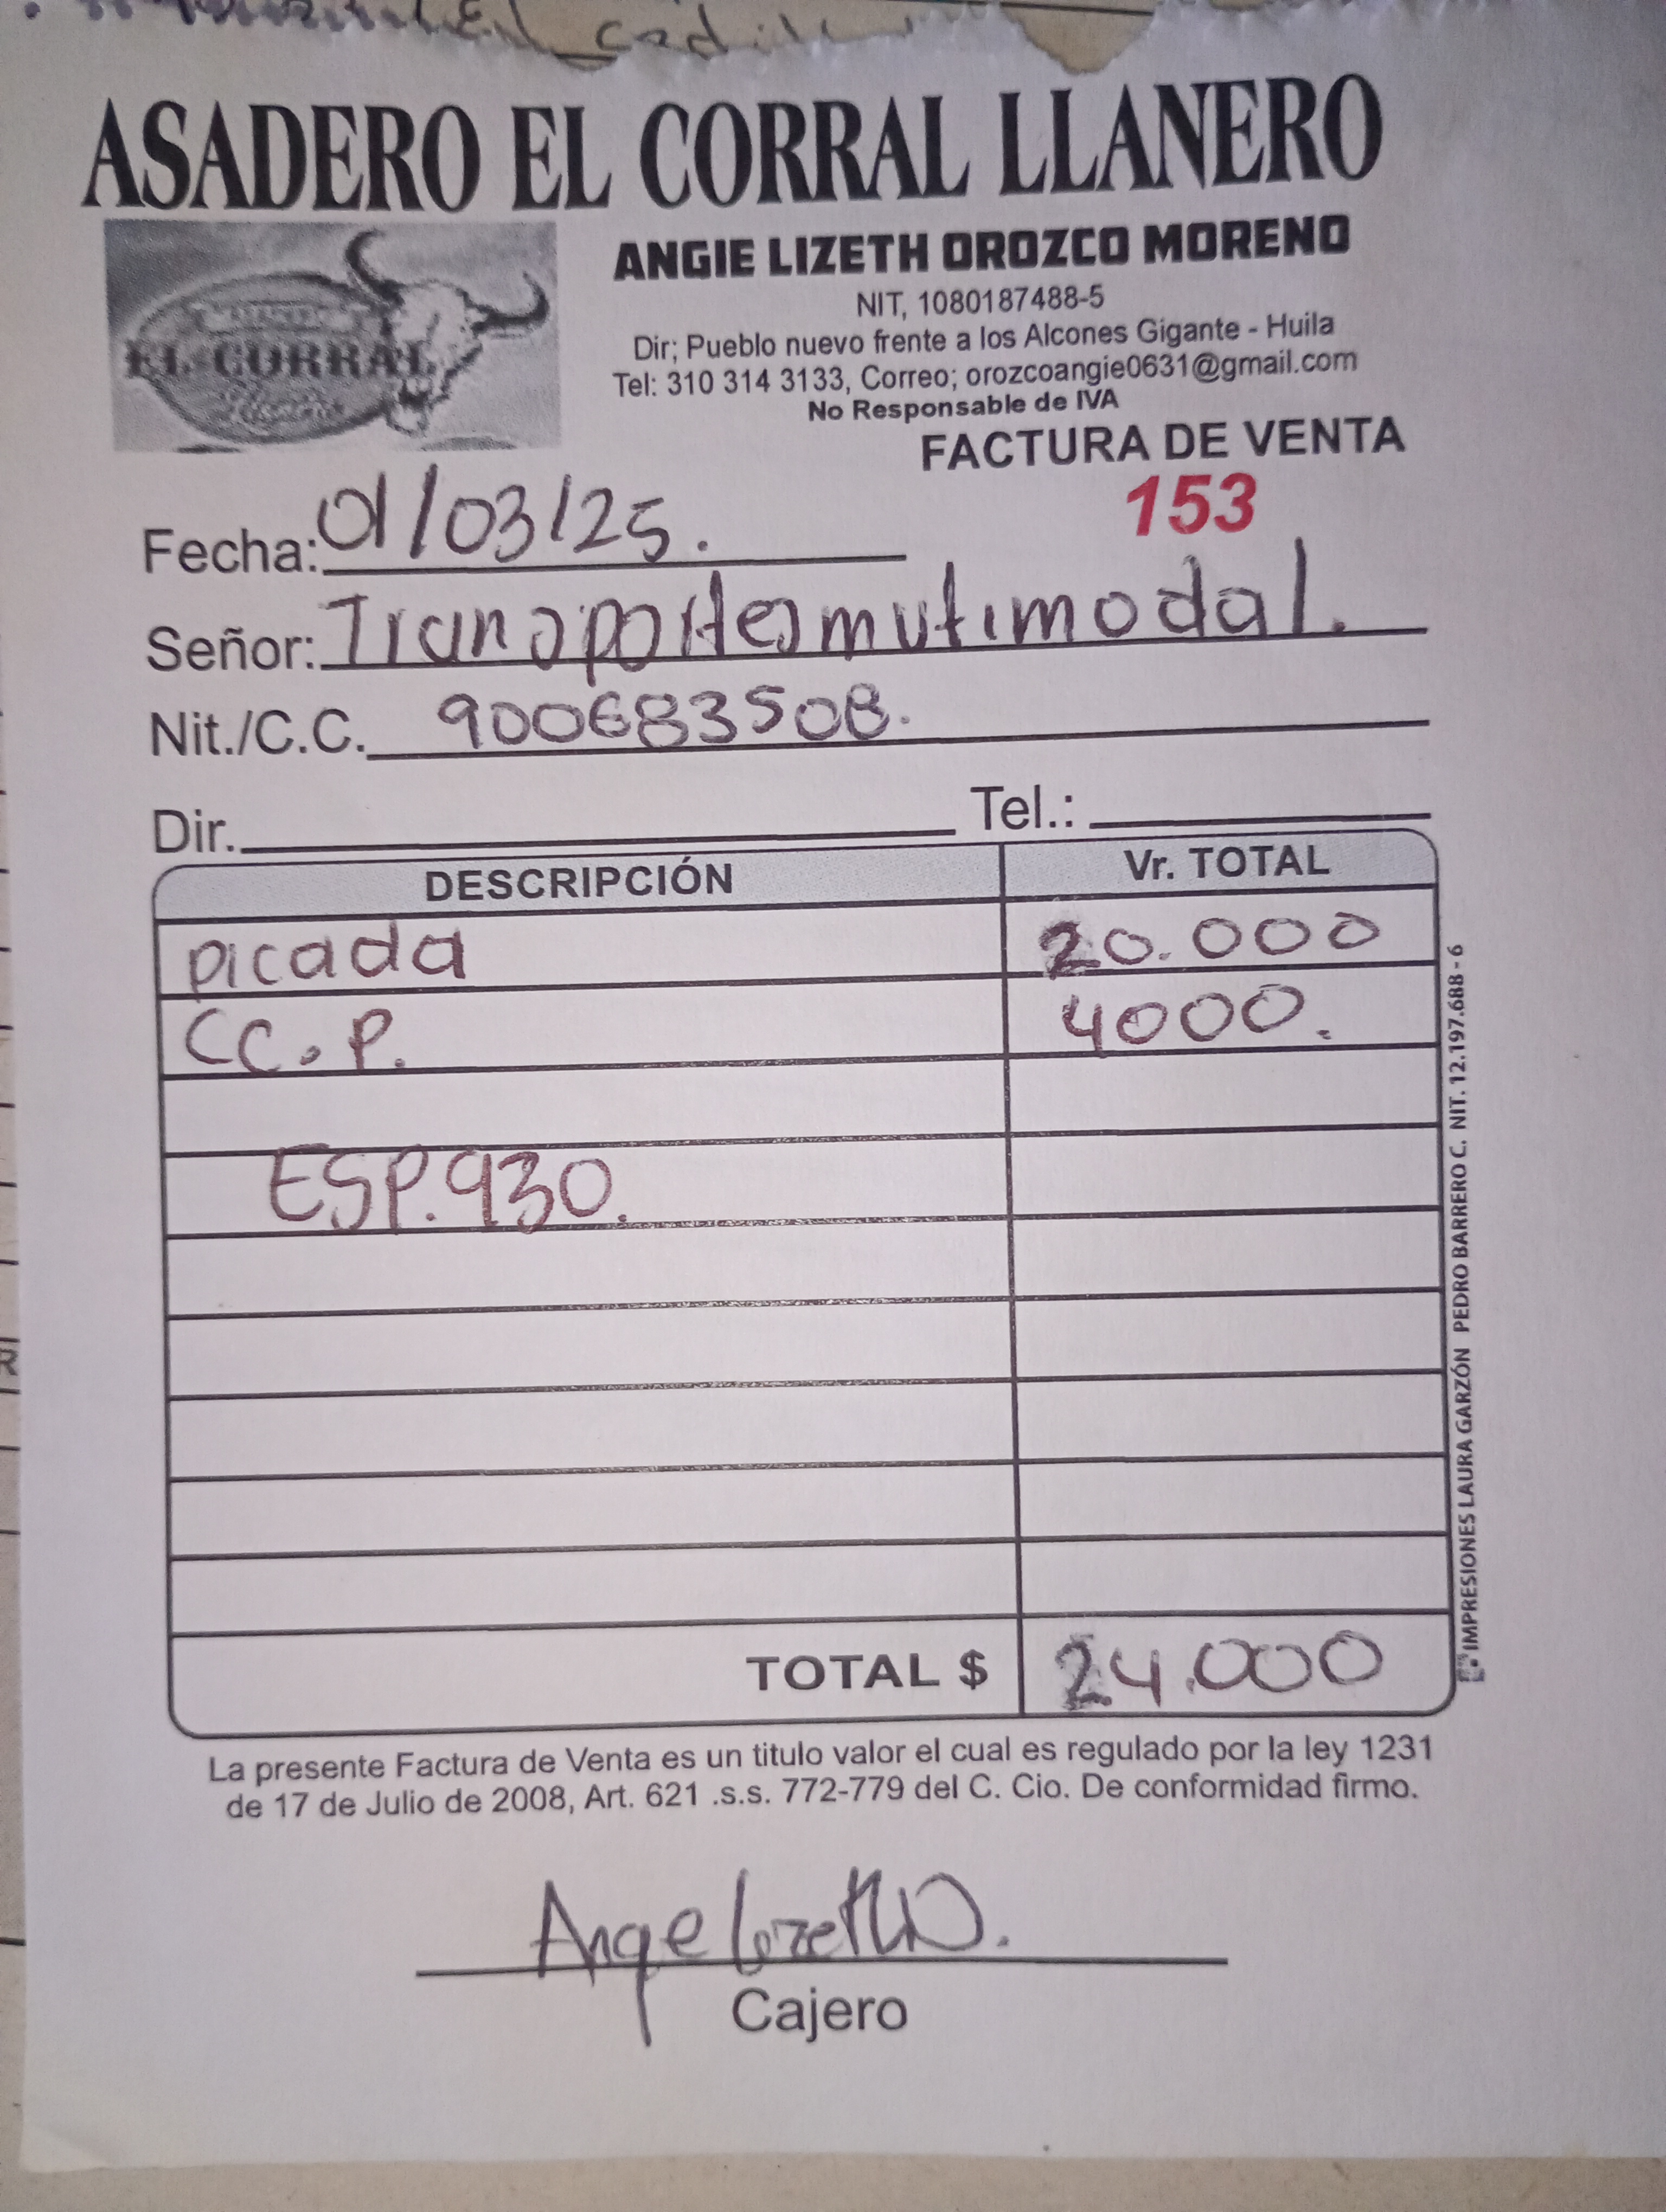 ASADERO EL CORRAL LLANERO
EL CORRAL
ANGIE LIZETH OROZCO MORENO
NIT, 1080187488-5
Dir; Pueblo nuevo frente a los Alcones Gigante - Huila
Tel: 310 314 3133, Correo; orozcoangie0631@gmail.com
No Responsable de IVA
FACTURA DE VENTA
153
Fecha: 01/03/25.
Señor: Transportes mutimodal.
Nit./C.C. 900683508.
Dir. Tel.:
DESCRIPCIÓN Vr. TOTAL
picada 20.000
CC. P. 4000.
ESP.930.
TOTAL $ 24.000
IMPRESIONES LAURA GARZÓN PEDRO BARRERO C. NIT. 12.197.688 - 6
La presente Factura de Venta es un titulo valor el cual es regulado por la ley 1231
de 17 de Julio de 2008, Art. 621 .s.s. 772-779 del C. Cio. De conformidad firmo.
Ange lizeth O.
Cajero